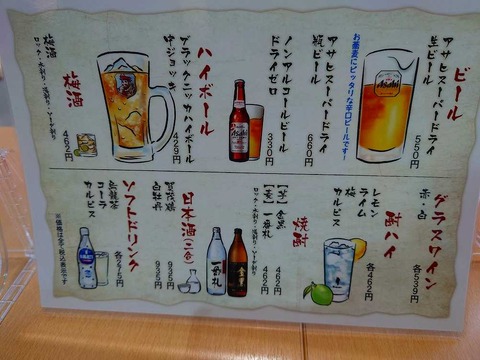 ビール
アサヒスーパードライ
生ビール
550円
お蕎麦にピッタリな辛口ビールです!
アサヒスーパードライ
瓶ビール
660円
ノンアルコールビール
ドライゼロ
330円
ハイボール
ブラックニッカハイボール
中ジョッキ
429円
梅酒
梅酒
ロック・水割り・湯割り・ソーダ割り
462円
Asahi
Asahi
グラスワイン
赤・白
各539円
酎ハイ
レモン
ライム
梅
カルピス
各462円
焼酎
【芋】金黒
462円
【麦】一番札
462円
ロック・水割り・湯割り・ソーダ割り
日本酒(一合)
賀茂鶴
935円
白牡丹
935円
一番札
金黒
ソフトドリンク
烏龍茶
コーラ
カルピス
各275円
※価格は全て税込表示です